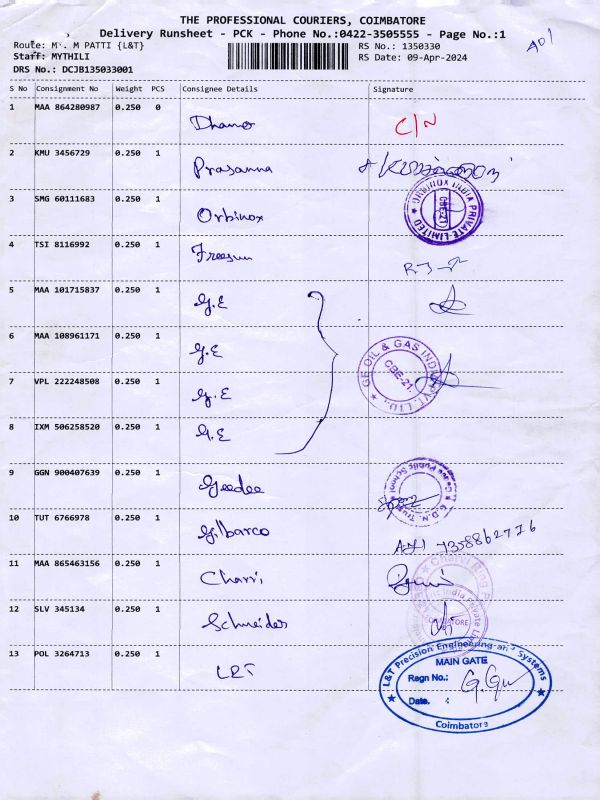 THE PROFESSIONAL COURIERS, COIMBATORE
Delivery Runsheet - PCK - Phone No.:0422-3505555 - Page No.:1
Route: M. M PATTI {L&T}
RS No.: 1350330
Staff: MYTHILI
RS Date: 09-Apr-2024
DRS No.: DCJB135033001
S No Consignment No Weight PCS Consignee Details Signature
1 MAA 864280987 0.250 0
C/N
2 KMU 3456729 0.250 1 Prasanna
3 SMG 60111683 0.250 1 Orbinox
ORBINOX INDIA PRIVATE LIMITED
4 TSI 8116992 0.250 1
5 MAA 101715837 0.250 1 G.E
6 MAA 108961171 0.250 1 G.E
GE OIL & GAS INDIA PVT. LTD. CBE-21.
7 VPL 222248508 0.250 1 G.E
8 IXM 506258520 0.250 1 G.E
9 GGN 900407639 0.250 1 Geedee
G.D.N. Public School
10 TUT 6766978 0.250 1 Gilbarco
7358862776
11 MAA 865463156 0.250 1 Charri
12 SLV 345134 0.250 1 Schneider
India Private
COIMBATORE
13 POL 3264713 0.250 1 L&T
L&T Precision Engineering and Systems
MAIN GATE
Regn No.:
Date. :
Coimbatore